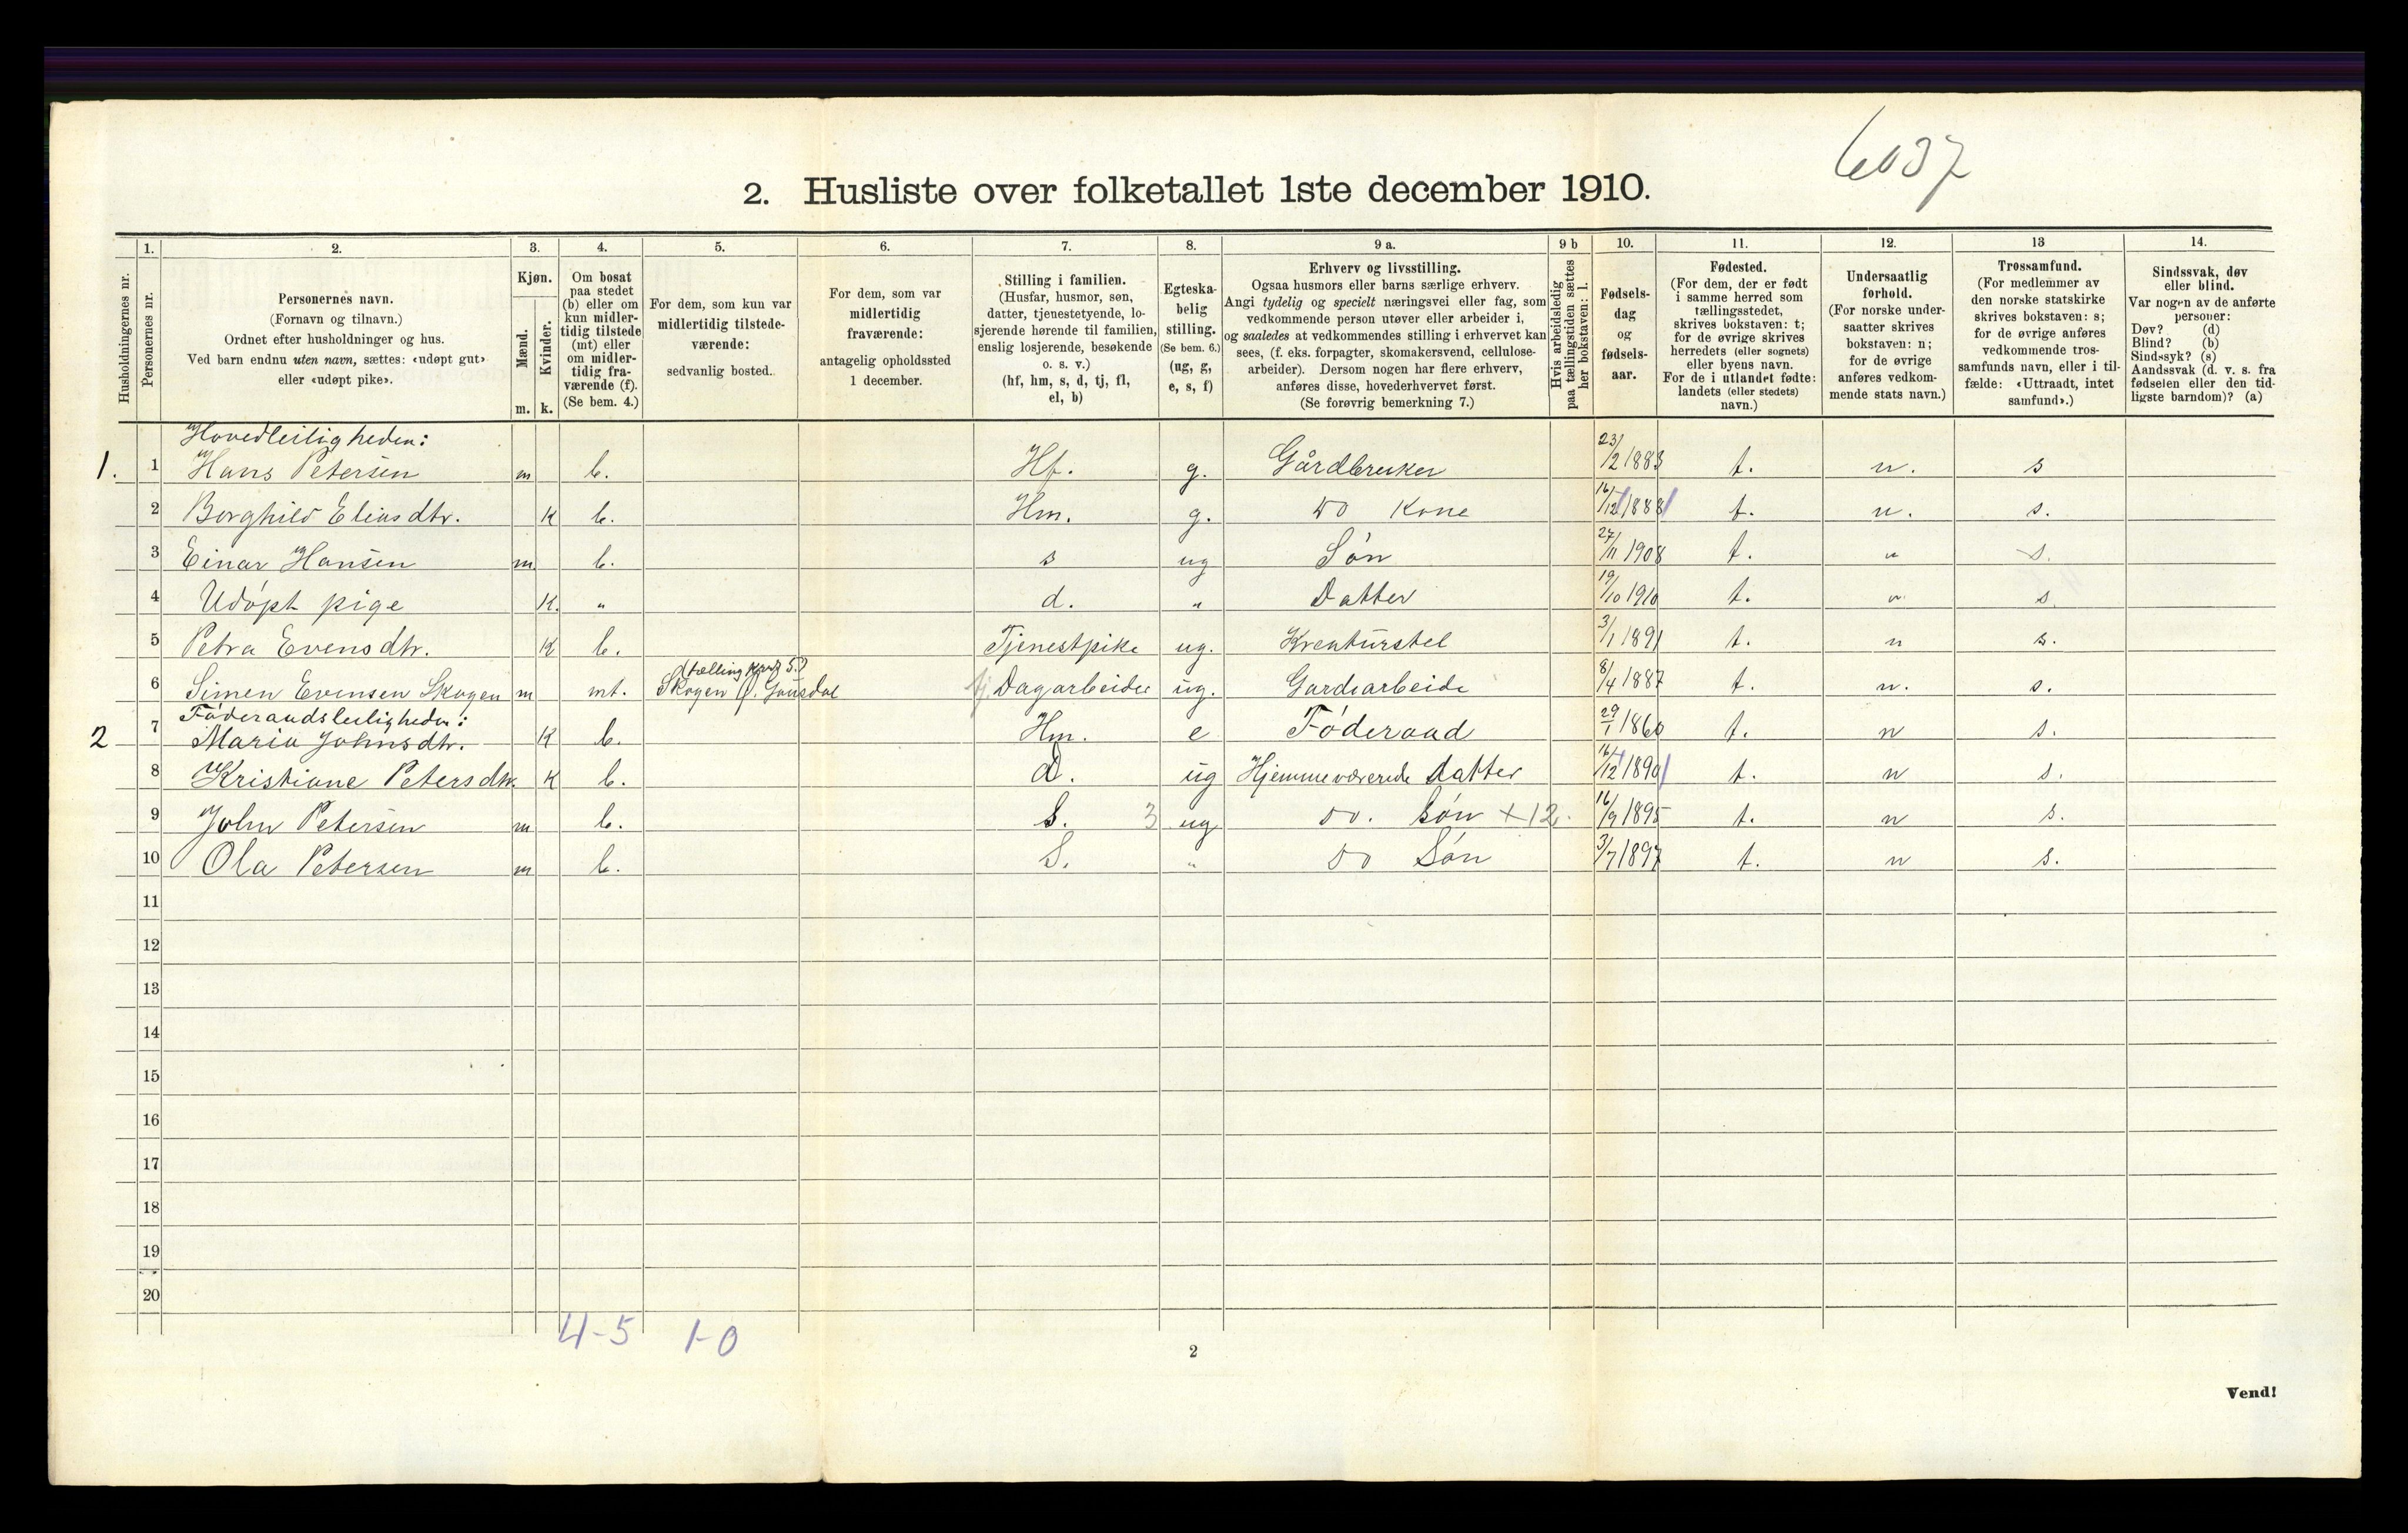 6037
2. Husliste over folketallet 1ste december 1910.
Husholdningernes nr.
1.
Personernes nr.
2.
Personernes navn.
(Fornavn og tilnavn.)
Ordnet efter husholdninger og hus.
Ved barn endnu uten navn, sættes: «udøpt gut»
eller «udøpt pike».
3.
Kjøn.
Mænd.
Kvinder.
m. k.
4.
Om bosat
paa stedet
(b) eller om
kun midler-
tidig tilstede
(mt) eller
om midler-
tidig fra-
værende (f).
(Se bem. 4.)
5.
For dem, som kun var
midlertidig tilstede-
værende:
sedvanlig bosted.
6.
For dem, som var
midlertidig
fraværende:
antagelig opholdssted
1 december.
7.
Stilling i familien.
(Husfar, husmor, søn,
datter, tjenestetyende, lo-
sjerende hørende til familien,
enslig losjerende, besøkende
o. s. v.)
(hf, hm, s, d, tj, fl,
el, b)
8.
Egteska-
belig
stilling.
(Se bem. 6.)
(ug, g,
e, s, f)
9 a.
Erhverv og livsstilling.
Ogsaa husmors eller barns særlige erhverv.
Angi tydelig og specielt næringsvei eller fag, som
vedkommende person utøver eller arbeider i,
og saaledes at vedkommendes stilling i erhvervet kan
sees, (f. eks. forpagter, skomakersvend, cellulose-
arbeider). Dersom nogen har flere erhverv,
anføres disse, hovederhvervet først.
(Se forøvrig bemerkning 7.)
9 b
Hvis arbeidsledig
paa tællingstiden sættes
her bokstaven: l.
10.
Fødsels-
dag
og
fødsels-
aar.
11.
Fødested.
(For dem, der er født
i samme herred som
tællingsstedet,
skrives bokstaven: t;
for de øvrige skrives
herredets (eller sognets)
eller byens navn.
For de i utlandet fødte:
landets (eller stedets)
navn.)
12.
Undersaatlig
forhold.
(For norske under-
saatter skrives
bokstaven: n;
for de øvrige
anføres vedkom-
mende stats navn.)
13
Trossamfund.
(For medlemmer av
den norske statskirke
skrives bokstaven: s;
for de øvrige anføres
vedkommende tros-
samfunds navn, eller i til-
fælde: «Uttraadt, intet
samfund».)
14.
Sindssvak, døv
eller blind.
Var nogen av de anførte
personer:
Døv? (d)
Blind? (b)
Sindssyk? (s)
Aandssvak (d. v. s. fra
fødselen eller den tid-
ligste barndom)? (a)
Hovedleiligheden:
1. 1 Hans Petersen m b. Hf. g. Gårdbruker 23/2 1883 t. n. s
2 Borghild Eliasdtr. K b. Hm. g. do Kone 16/12 1888 t. n. s.
3 Einar Hansen m. b. s ug Søn 27/11 1908 t. " s.
4 Udøpt pige K. " d. " Datter 19/10 1910 t. " s.
5 Petra Evensdtr. K b. Tjenestpike ug. Kreaturstel 3/1 1891 t. n s.
6 Simen Evensen Skogen m mt. Skogen Ø. Gausdal tj Dagarbeider ug. Gardsarbeide 8/4 1887 t. n. s.
Föderaadsleiligheden:
2 7 Maria Johnsdtr. K b. Hm. e Föderaad 29/1 1860 t. n s.
8 Kristiane Petersdtr. K b. d. ug Hjemmeværende datter 16/12 1890 t. n s.
9 John Petersen m b. S. 3 ug do. søn +12. 16/9 1895 t. n s.
10 Ola Petersen m b. S. " do Søn 3/7 1897 t. n s.
11
12
13
14
15
16
17
18
19
20
4-5 1-0
2
Vend!